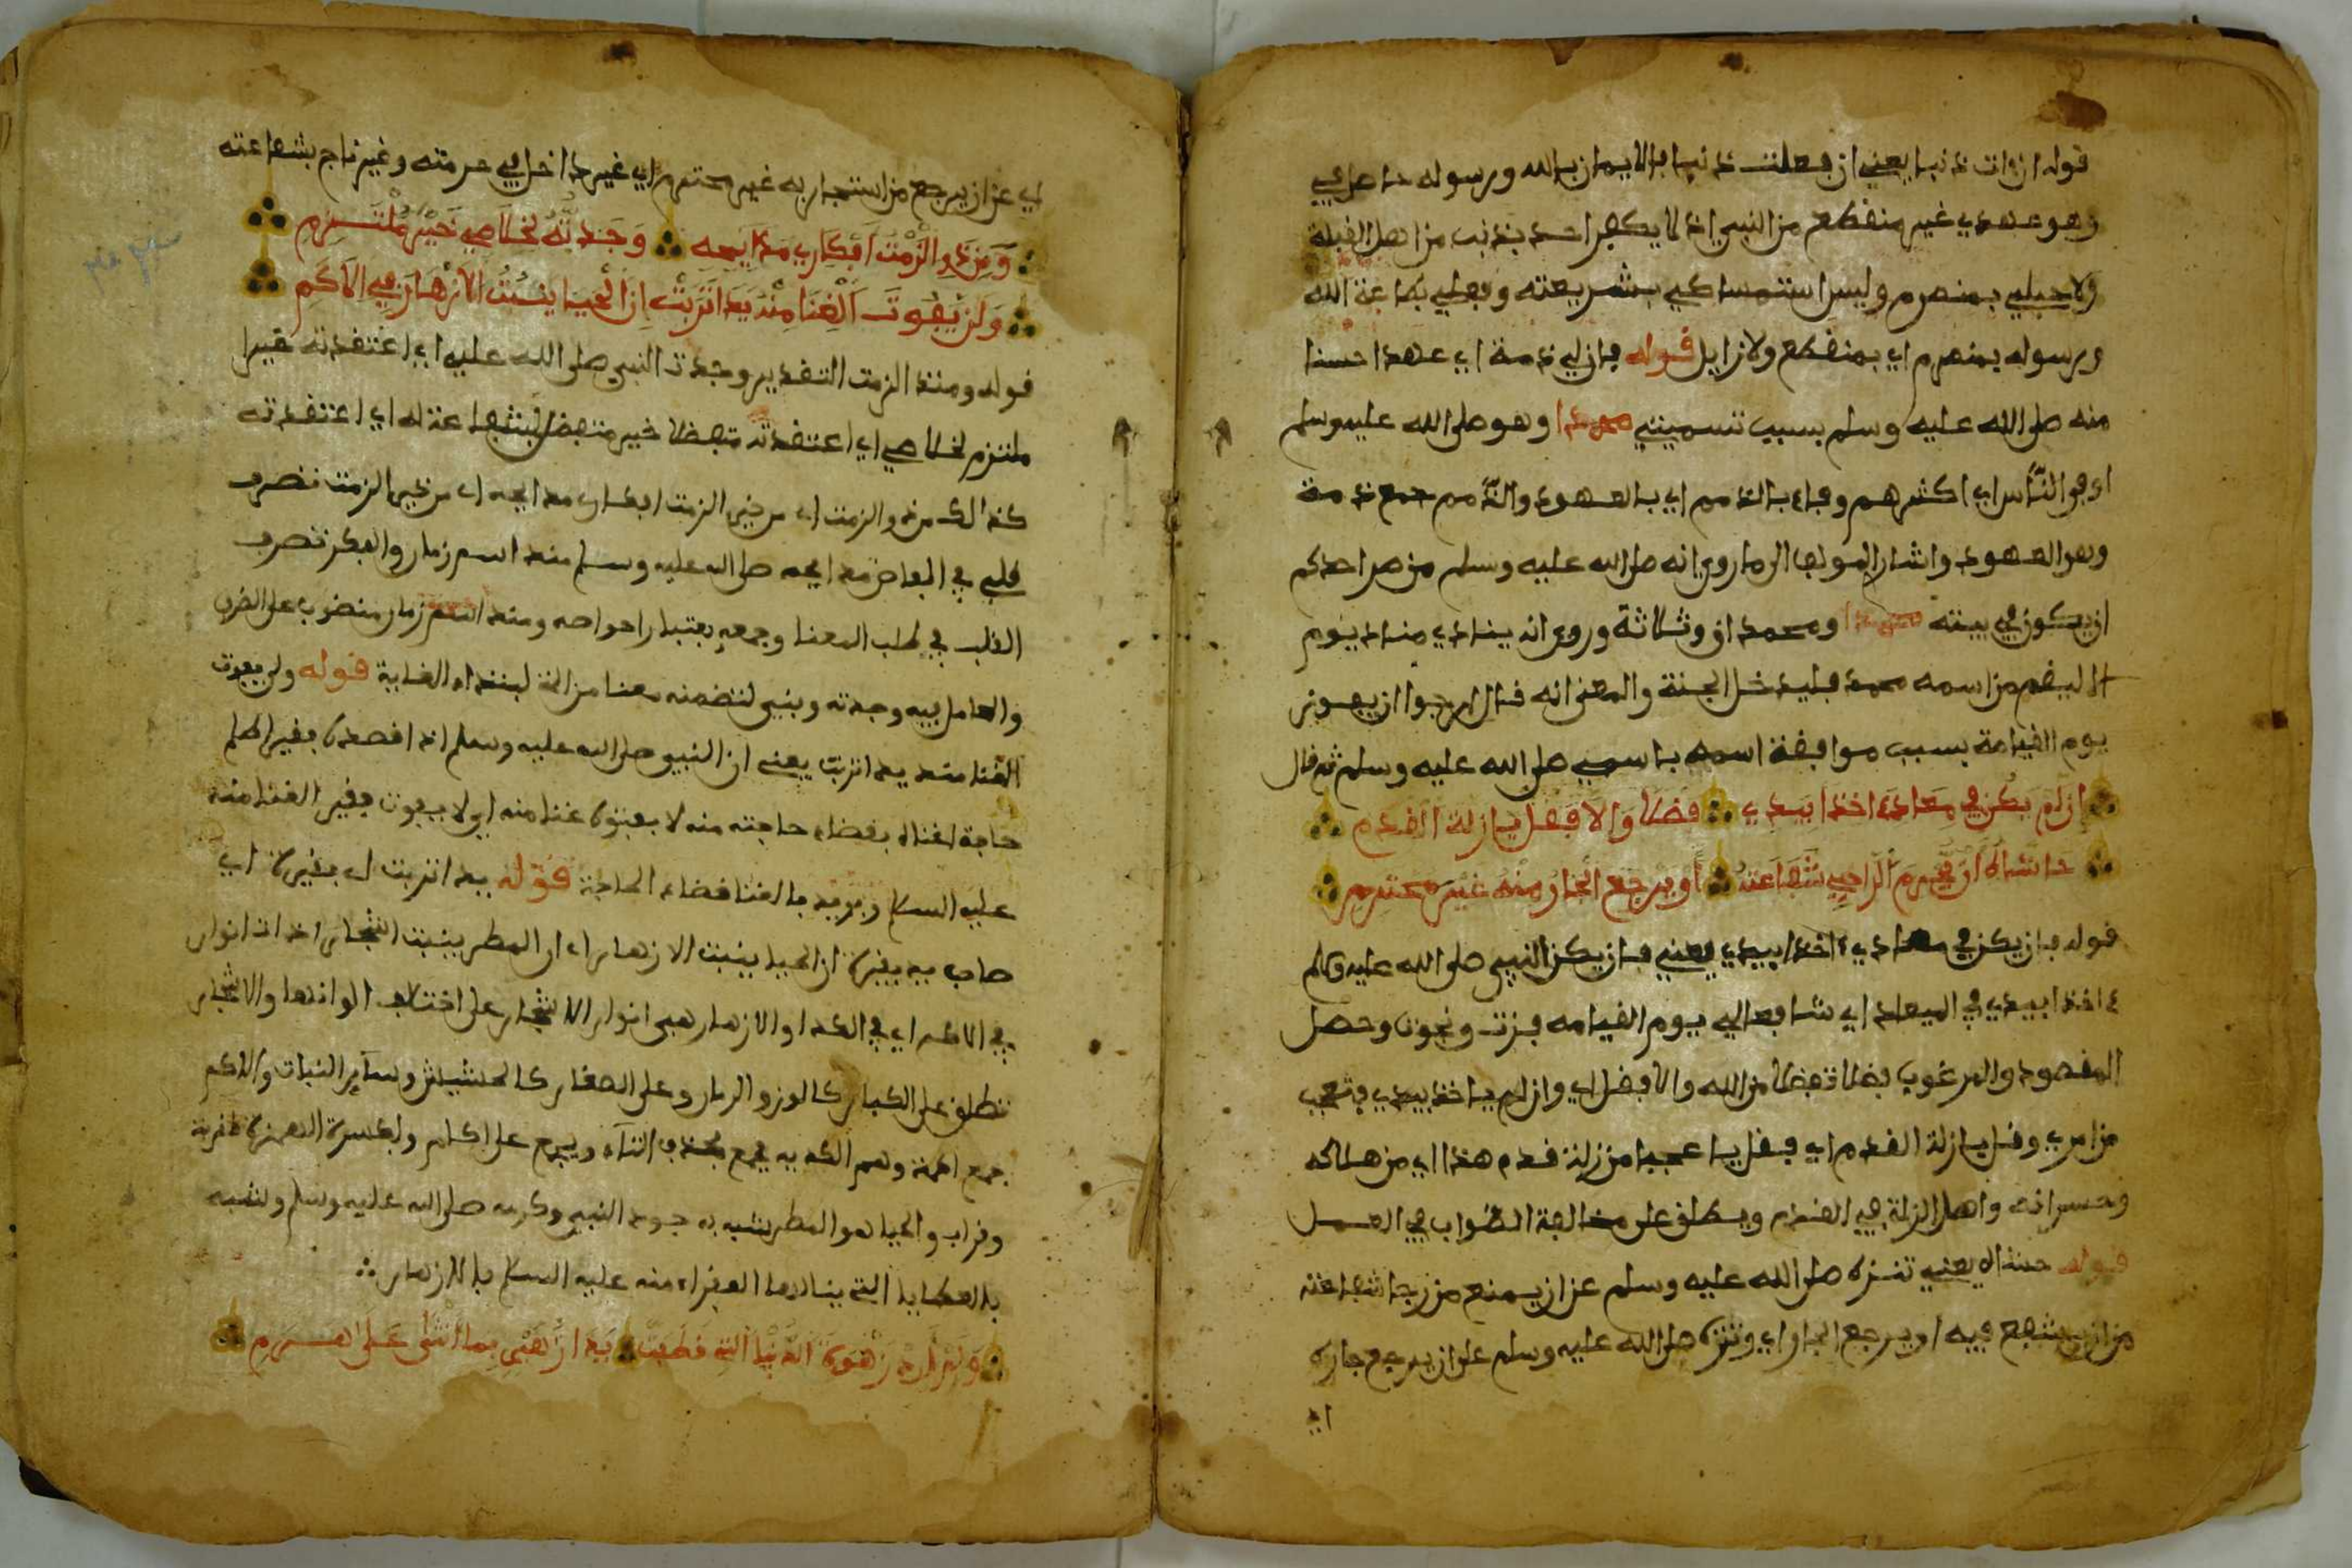 قوله ان ات ذنبا يعني ان فعلت ذنبا فالايمان بالله ورسوله حاصل في
وهو عهدي غير منقطع من النبي اذ لا يكفر احد بذنب من اهل القبلة
ولا حبلي بمنصرم وليس استمساكي بشريعته وفعلي طاعة الله
ورسوله بمنصرم اي بمنقطع ولا زايل قوله فان لي ذمة اي عهدا حسنا
منه صلى الله عليه وسلم بسبب تسميتي محمدا وهو صلى الله عليه وسلم
اوفى الناس اي اكثرهم وفاء بالذمم اي بالعهود والذمم جمع ذمة
وهو العهود واشار المولف الى ما روي انه صلى الله عليه وسلم من صر احدكم
ان يكون في بيته محمدا ومحمدان وثلاثة وروي انه ينادي مناد يوم
الا ليقم من اسمه محمد فليدخل الجنة والمعنى انه قال ارجوا ان يفوز
يوم القيامة بسبب موافقة اسمه باسمي صلى الله عليه وسلم ثم قال
ان لم يكن في معادي ءاخذا بيدي فضلا والا فقل يا زلة القدم
حاشاه ان يحرم الراجي شفاعته او يرجع الجار منه غير محترم
قوله فان يكن في معادي ءاخذا بيدي يعني فان يكن النبي صلى الله عليه وسلم
ءاخذا بيدي في الميعاد اي شافعا لي يوم القيامه فزت ونجوت وحصل
المقصود والمرغوب فضلا تفضلا من الله والا فقل اي وان لم ياخذ بيدي فتعجب
من امري وقل يا زلة القدم اي فقل يا عجبا من زلة قدم هذا اي من هلاكه
وخسرانه واصل الزلة في القدم ويطلق على مخالفة الصواب في العمل
قوله حشاه يعني تنزه صلى الله عليه وسلم عن ان يمنع من رجا شفاعته
من ان يشفع فيه او يرجع الجار اي وتنزه صلى الله عليه وسلم على ان يرجع جاره
اي
اي عن ان يرجع من استجار به غير محترم اي غير داخل في حرمته وغير ناج بشفاعته
ومنذ الزمت افكاري مدايحه وجدته لخلاصي خير ملتزم
ولن يفوت الغنا منه يدا تربت ان الحيا ينبت الازهار في الاكم
قوله ومنذ الزمت التقدير وجدت النبي صلى الله عليه اي اعتقدته خير
ملتزم لخلاصي اي اعتقدته متفضلا خير متفضل بشفاعته له اي اعتقدته
كذالك منذ والزمت اي من حين الزمت افكاري مدايحه اي من حين الزمت تصرف
قلبي في المعاض مدايحه صلى الله عليه وسلم منذ اسم زمان والفكر تصرف
القلب في طلب المعنا وجمعه بعتبار احواصه ومنذ اسم زمان منصوب على الظرف
والعامل فيه وجدته وبني لتضمنه معنا من التي لبتداء الغاية قوله ولن يفوت
الغنا منه يدا تربت يعني ان النبي صلى الله عليه وسلم اذا قصده فقير الى
حاجة اغناه بقضاء حاجته منه لا يفوته غنا منه اي لا يفوت فقير الغنا منه
عليه السلام ويريد بالغنا قضاء الحاجة قوله يدا تربت اي فقيرة اي
صاحب يد فقيرة ان الحيا ينبت الازهار اي ان المطر ينبت الاشجار ذات انوار
في الاكم اي في الكدا والازهار هي انوار الاشجار على اختلاف الوانها والاشجار
تطلق على الكبار كالوز والرمان وعلى الصغار كالحشيش وساير النبات والاكم
جمع اكمة وهم الكديه يجمع بحذف التاء ويجمع على اكام وبكسرة الهمزة كقربة
وقراب والحيا هو المطر يشبه به جود النبي وكرمه صلى الله عليه وسلم ولشبه
بالعطايا التي ينالها الفقراء منه عليه السلام بالازهار
ولم ارد زهرة الدنيا التي قطفت يدا زهير بما اثنى على هرم